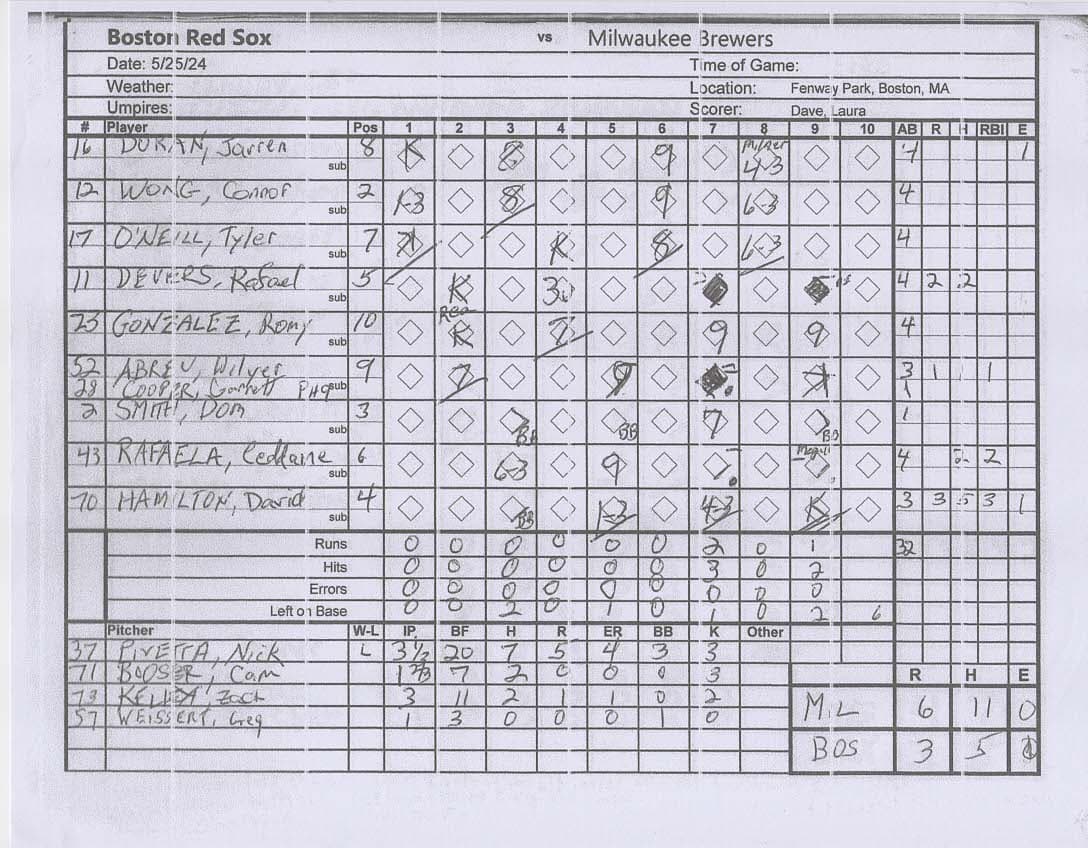 Boston Red Sox vs Milwaukee Brewers
Date: 5/25/24 Time of Game:
Weather: Location: Fenway Park, Boston, MA
Umpires: Scorer: Dave, Laura
# Player Pos 1 2 3 4 5 6 7 8 9 10 AB R H RBI E
16 DURAN, Jarren sub 8 K 8 9 4-3 4 1
12 WONG, Connor sub 2 1-3 8 9 6-3 4
17 O'NEILL, Tyler sub 7 K 8 6-3 4
11 DEVERS, Rafael sub 5 K 4 2 2
23 GONZALEZ, Romy sub 10 K 7 9 9 4
52 ABREU, Wilyer 9 7 9 3 1 1 1
28 COOPER, Garrett PH9 sub 1
2 SMITH, Dom sub 3 BB BB 7 BB 1
43 RAFAELA, Ceddanne sub 6 6-3 9 4 2 2
70 HAMILTON, David sub 4 BB 1-3 4-3 K 3 3 5 3 1
Runs 0 0 0 0 0 0 2 0 1 32
Hits 0 0 0 0 0 0 3 0 2
Errors 0 0 0 0 0 0 0 0 0
Left on Base 0 0 2 0 1 0 1 0 2 6
Pitcher W-L IP BF H R ER BB K Other
37 PIVETTA, Nick L 3 1/3 20 7 5 4 3 3
71 BOOSER, Cam 1 2/3 7 2 0 0 0 3
R H E
73 KELLY, Zack 3 11 2 1 1 0 2
MIL 6 11 0
57 WEISSERT, Greg 1 3 0 0 0 1 0
BOS 3 5